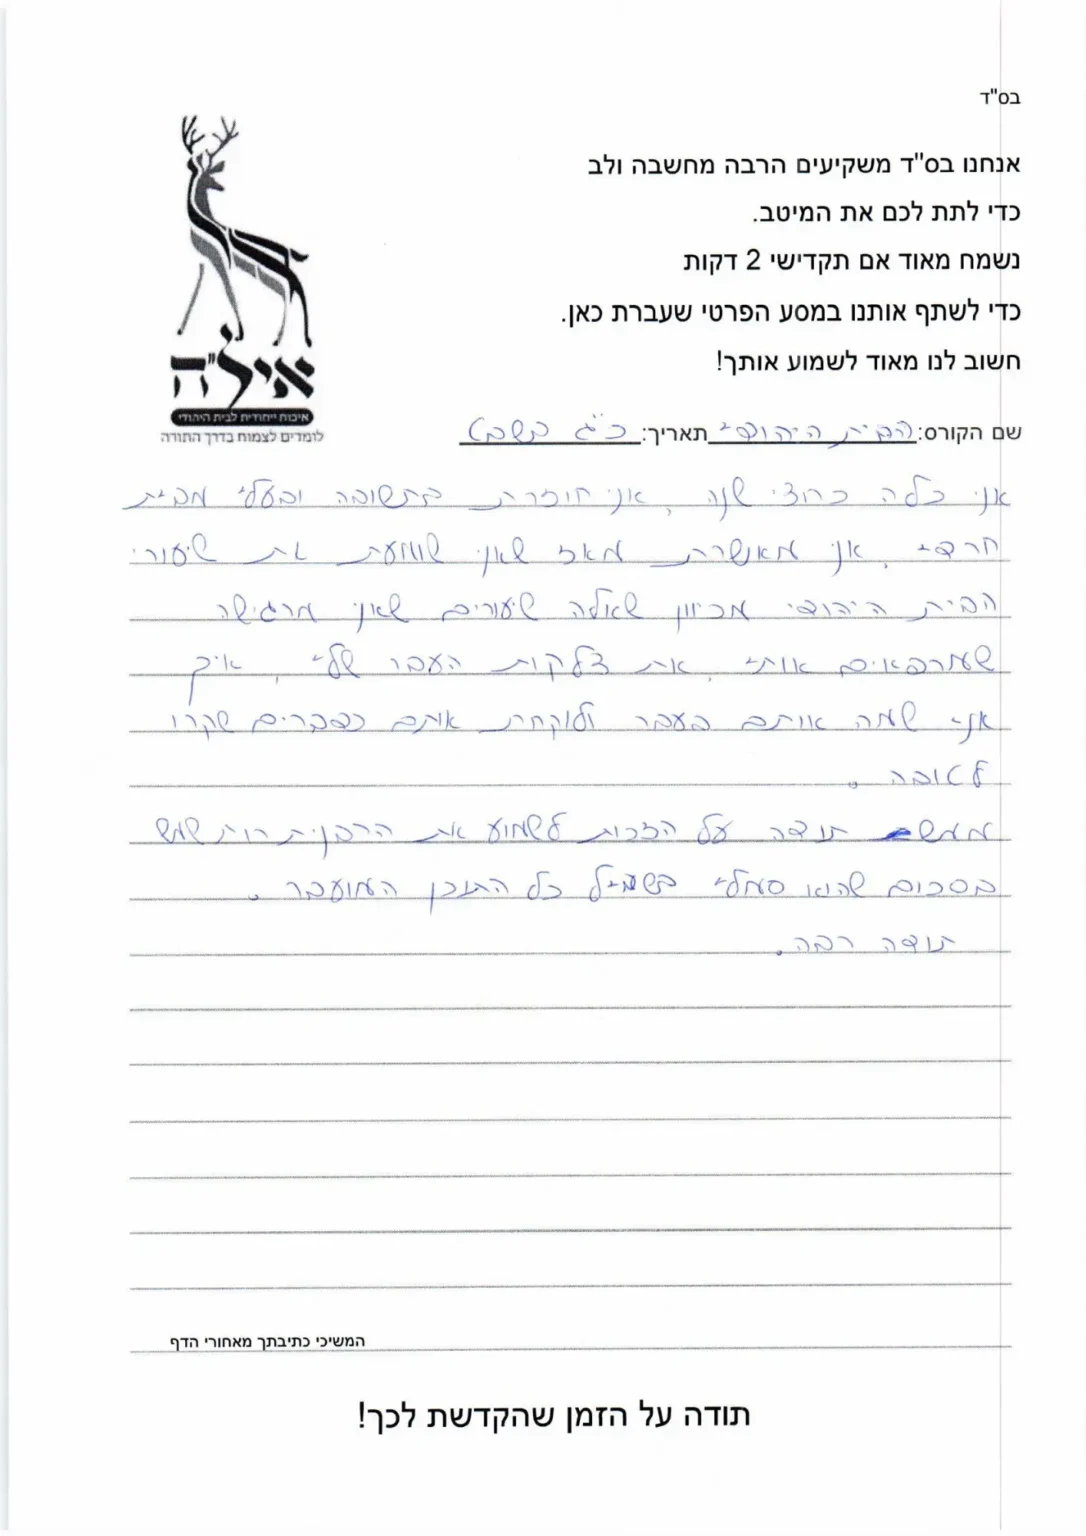 בס"ד
אנחנו בס"ד משקיעים הרבה מחשבה ולב
כדי לתת לכם את המיטב.
נשמח מאוד אם תקדישי 2 דקות
כדי לשתף אותנו במסע הפרטי שעברת כאן.
חשוב לנו מאוד לשמוע אותך!
איל"ה
איכות ייחודית לבית היהודי
לומדים לצמוח בדרך התורה
שם הקורס: הבית היהודי תאריך: כ"ג בשבט
אני כלה כחצי שנה, אני חוזרת בתשובה ובעלי מבית
חרדי. אני מאושרת מאז שאני שומעת את שיעורי
הבית היהודי מכיוון שאלה שיעורים שאני מרגישה
שמרפאים אותי, את צלקות העבר שלי, איך
אני שמה אותם בעבר ולוקחת אותם כדברים שקרו
לטובה.
ממש תודה על הזכות לשמוע את הרבנית רות שמש
בסכום שהוא סמלי בשביל כל התוכן המועבר.
תודה רבה.
המשיכי כתיבתך מאחורי הדף
תודה על הזמן שהקדשת לכך!